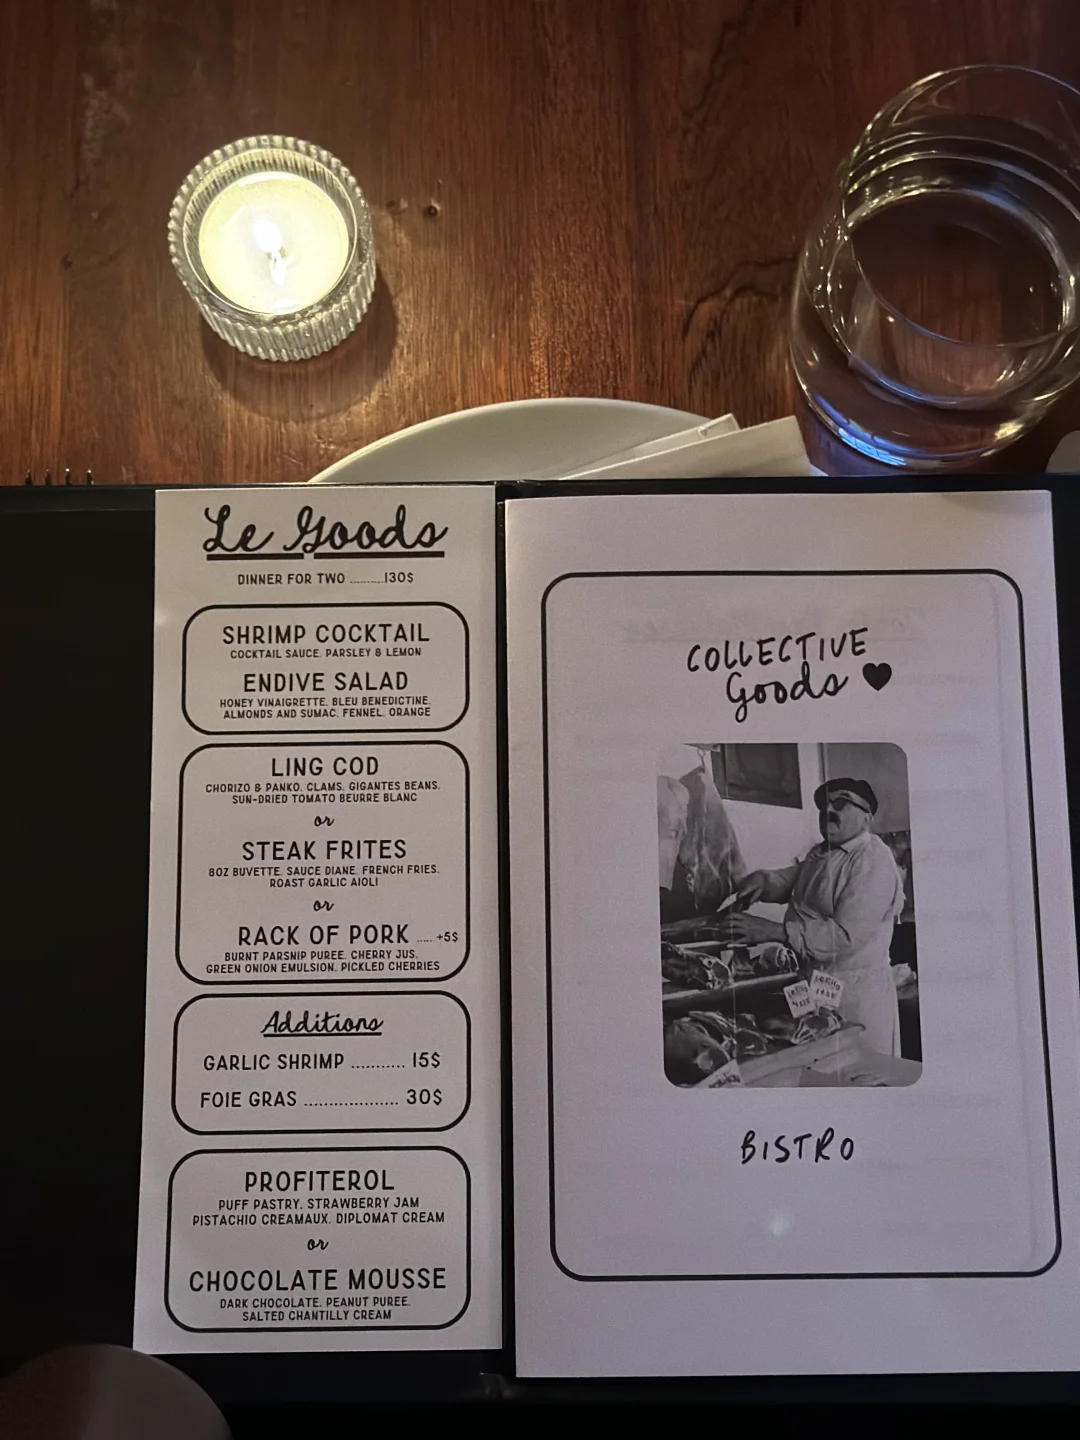 Le Goods
DINNER FOR TWO ..........130$
SHRIMP COCKTAIL
COCKTAIL SAUCE, PARSLEY & LEMON
ENDIVE SALAD
HONEY VINAIGRETTE, BLEU BENEDICTINE,
ALMONDS AND SUMAC, FENNEL, ORANGE
LING COD
CHORIZO & PANKO, CLAMS, GIGANTES BEANS,
SUN-DRIED TOMATO BEURRE BLANC
or
STEAK FRITES
8OZ BUVETTE, SAUCE DIANE, FRENCH FRIES,
ROAST GARLIC AIOLI
or
RACK OF PORK ..... +5$
BURNT PARSNIP PUREE, CHERRY JUS,
GREEN ONION EMULSION, PICKLED CHERRIES
Additions
GARLIC SHRIMP ........... 15$
FOIE GRAS ................... 30$
PROFITEROL
PUFF PASTRY, STRAWBERRY JAM
PISTACHIO CREAMAUX, DIPLOMAT CREAM
or
CHOCOLATE MOUSSE
DARK CHOCOLATE, PEANUT PUREE,
SALTED CHANTILLY CREAM
COLLECTIVE
Goods
BISTRO